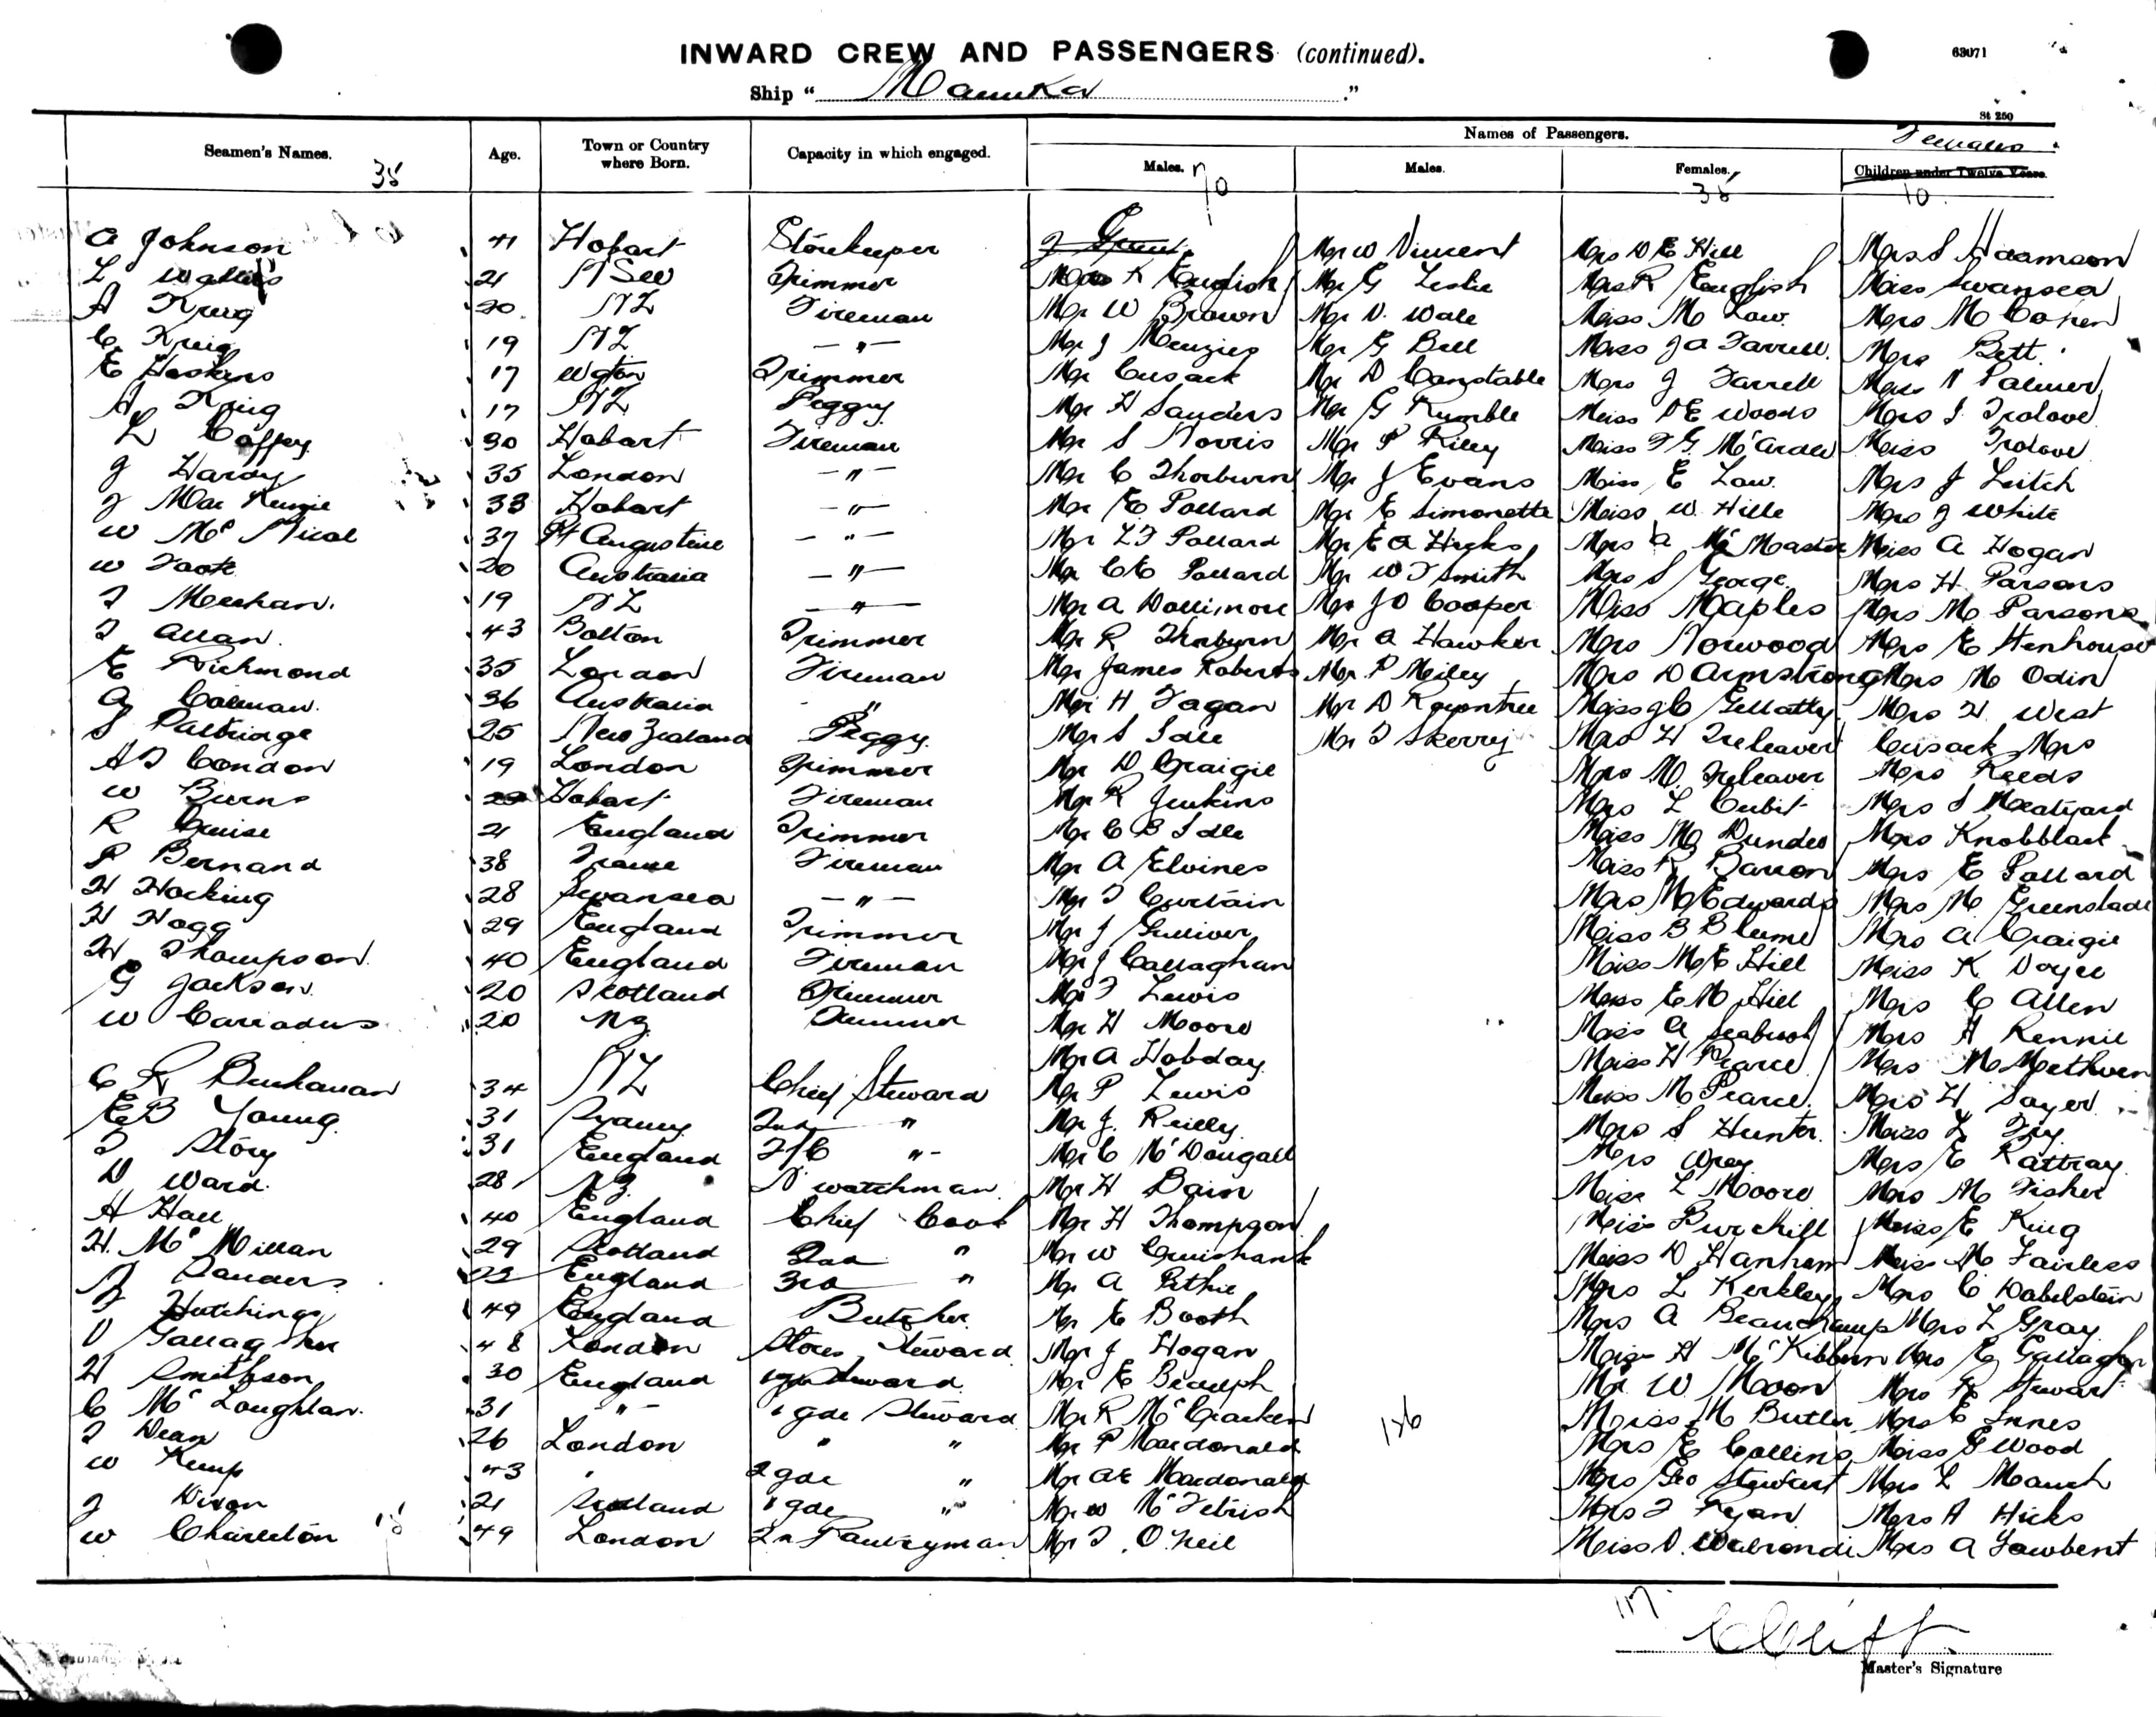 63071
INWARD CREW AND PASSENGERS (continued).
Ship " Manuka "
St 250
Names of Passengers. Females
Seamen's Names. Age. Town or Country where Born. Capacity in which engaged. Males. Males. Females. Children under Twelve Years.
35 70 35 10
A Johnson 41 Hobart Storekeeper J Grant Mr W Vincent Mrs D E Hill Mrs S Adamson
L Wallis 21 NSW Trimmer R English Mr G Leslie Mrs R English Miss Swansea
A Krug 20 NZ Fireman Mr W Brown Mr D. Wale Miss M Law Mrs M Cohen
C Krug 19 NZ —"— Mr J Menzies Mr G Bell Miss J A Farrell Mrs Bett
E Hoskins 17 Wgton Trimmer Mr Cusack Mr D Constable Mrs J Farrell Miss N Palmer
A Krug 17 NZ Peggy Mr H Sanders Mr G Rumble Miss D E Woods Mrs J Trolove
L Coffey 30 Hobart Fireman Mr S Norris Mr P Riley Miss F G McArdle Miss Trolove
J Hardy 35 London —"— Mr C Thorburn Mr J Evans Miss E Law Mrs J Leitch
J MacKenzie 33 Hobart —"— Mr E Pollard Mr E Simonette Miss W. Hille Mrs J White
W McNicol 37 Pt Augustine —"— Mr L F Pollard Mr E A Hicks Mrs A McMaster Miss A Hogan
W Foote 20 Australia —"— Mr C E Pollard Mr W T Smith Mrs S George Mrs H Parsons
T Meehan 19 NZ —"— Mr A Dollimore Mr J D Cooper Miss Maples Mrs M Parsons
T Allan 43 Bolton Trimmer Mr R Thorburn Mr A Hawker Mrs Norwood Mrs E Henhouse
E Richmond 35 London Fireman Mr James Roberts Mr P Meiley Mrs D Armstrong Mrs M Odin
A Colman 36 Australia " Mr H Fagan Mr D Royontree Miss J C Gellatly Mrs H West
S Palbridge 25 New Zealand Peggy Mr S Idle Mr T Skerry Mrs H Treleaven Cusack Mrs
A J Condon 19 London Trimmer Mr D Craigie Mrs M Treleaven Mrs Reeds
W Burns Hobart Fireman Mr R Jenkins Mrs L Cubit Mrs S Meatyard
R Cruise 21 England Trimmer Mr C B Idle Miss M Dundes Mrs Knobblack
P Bernand 38 France Fireman Mr A Elvines Miss R Barron Mrs E Pollard
H Hocking 28 Swansea —"— Mr T Curtain Mrs M Edwards Mrs M Greenslade
H Hogg 29 England Trimmer Mr J Gulliver Miss B Blume Mrs A Craigie
H Thompson 40 England Fireman Mr J Callaghan Miss M E Hill Miss K Doyle
G Jackson 20 Scotland Trimmer Mr T Lewis Miss E M Hill Mrs C Allen
W Carradus 20 NZ Trimmer Mr H Moore Miss A Seabrook Mrs A Rennie
Mr A Hobday Miss H Pearce Mrs M Methven
C R Buchanan 34 NZ Chief Steward Mr P Lewis Miss M Pearce Mrs H Sayer
E B Young 31 Sydney 2nd " Mr J. Reilly Mrs S Hunter Miss L Fry
T Story 31 England F/C " Mr C McDougall Mrs Wray Mrs E Rattray
D Ward 28 NZ N watchman Mr H Bain Miss L Moore Mrs M Fisher
A Hall 40 England Chief Cook Mr H Thompson Miss Burchill Miss E King
H. McMillan 29 Scotland 2nd " Mr W Cruishank Miss D Hanham Miss M Fairless
Sanders 22 England 3rd " Mr A Pethie Mrs L Kerkley Mrs C Dabelstein
Hutchings 49 England Butcher Mr E Booth Mrs A Beauchamp Mrs L Gray
D Gallagher 48 London Stores Steward Mr J Hogan Miss A McKibben Mrs E Gallagher
H Smithson 30 England Steward Mr E Beadeph Mr W Moon Mrs R Stewart
C McLoughlan 31 " 1 gde Steward Mr R McCracken 126 Miss M Butler Mrs E Innes
T Dean 26 London " " Mr P Macdonald Mrs E Collins Miss P Wood
W Kemp 43 " 2 gde " Mr A E Macdonald Mrs Geo Stewart Mrs L Mauch
J Dixon 21 Scotland 1 gde " Mr W McFetrish Mrs T Ryan Mrs A Hicks
W Charlton 49 London 2n Pantryman Mr T. O.Neil Miss D. Walrond Mrs A Fawbent
117
C Clift
Master's Signature